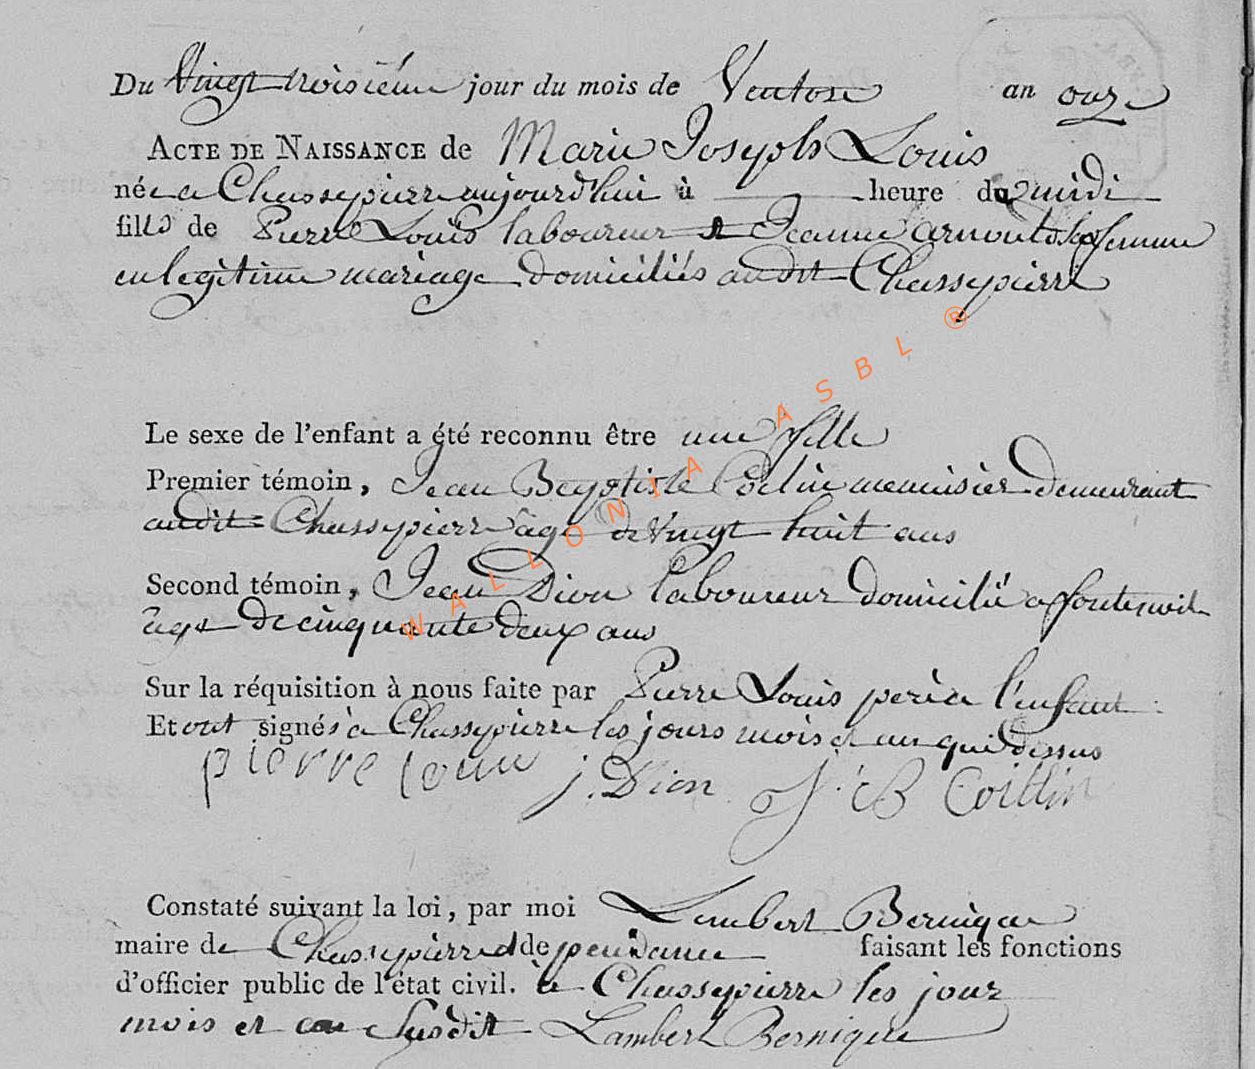 Du Vingt troisiéme jour du mois de Ventose an onze
ACTE DE NAISSANCE de Marie Joseph Louis
née a Chassepierre aujourd'hui à heure du midi
fille de Pierre Louis laboureur et Jeanne arnould sa femme
en legitime mariage domiciliés audit Chassepierre
Le sexe de l'enfant a été reconnu être une fille
Premier témoin, Jean Baptiste menuisier demeurant
audit Chassepierre âgé de Vingt huit ans
Second témoin, Jean Dion laboureur domicilié a fontenoil
âgé de cinquante deux ans
Sur la réquisition à nous faite par Pierre Louis père de l'enfant
Et ont signés a Chassepierre les jours mois et an que dessus
pierre louis j. Dion J: B Coillin
Constaté suivant la loi, par moi Lambert Bernique
maire de Chassepierre et dependance faisant les fonctions
d'officier public de l'état civil. à Chassepierre les jour
mois et an susdit Lambert Bernique
WALLONIA ASBL ®